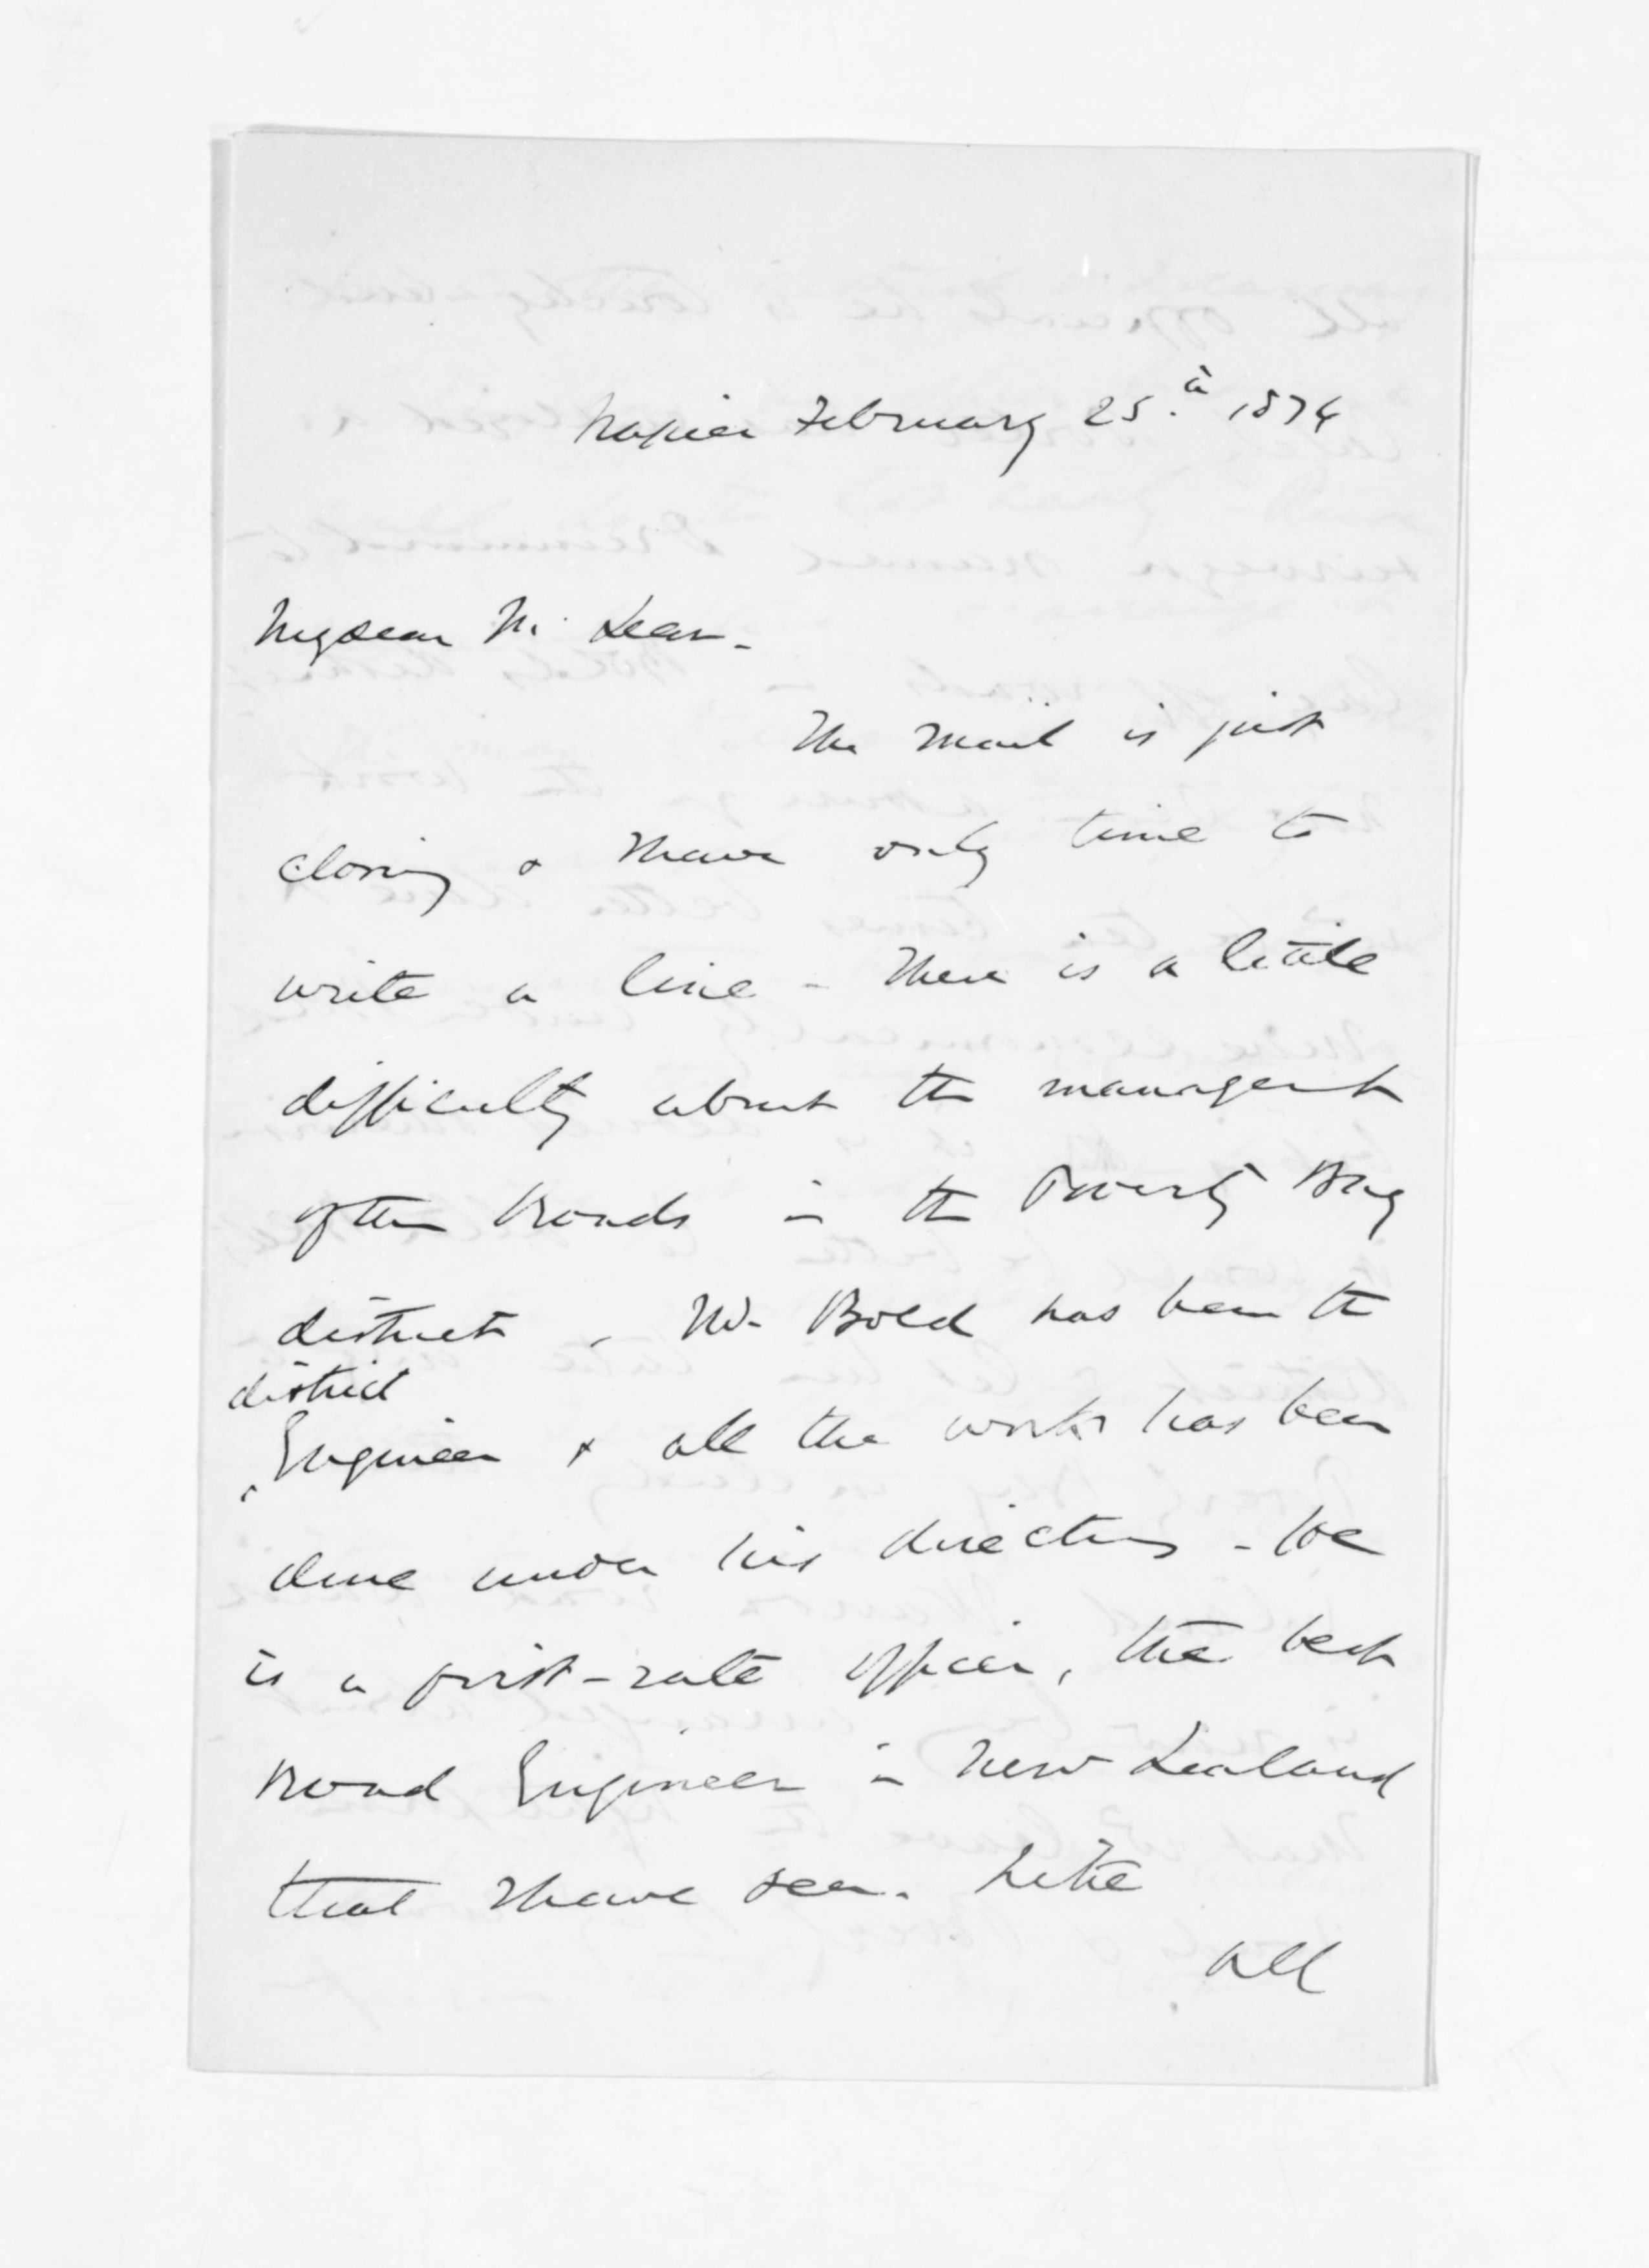 Napier February 25.th 1874
My dear Mc Lean -
The Mail is just
closing & I have only time to
write a line - There is a little
difficulty about the managent
of the Roads in the Poverty Bay
district, Mr. Bold has been the
district
Engineer & all the work has been
done under his directions - he
is a first-rate officer, the best
Road Engineer in New Zealand
that I have seen. Like
all